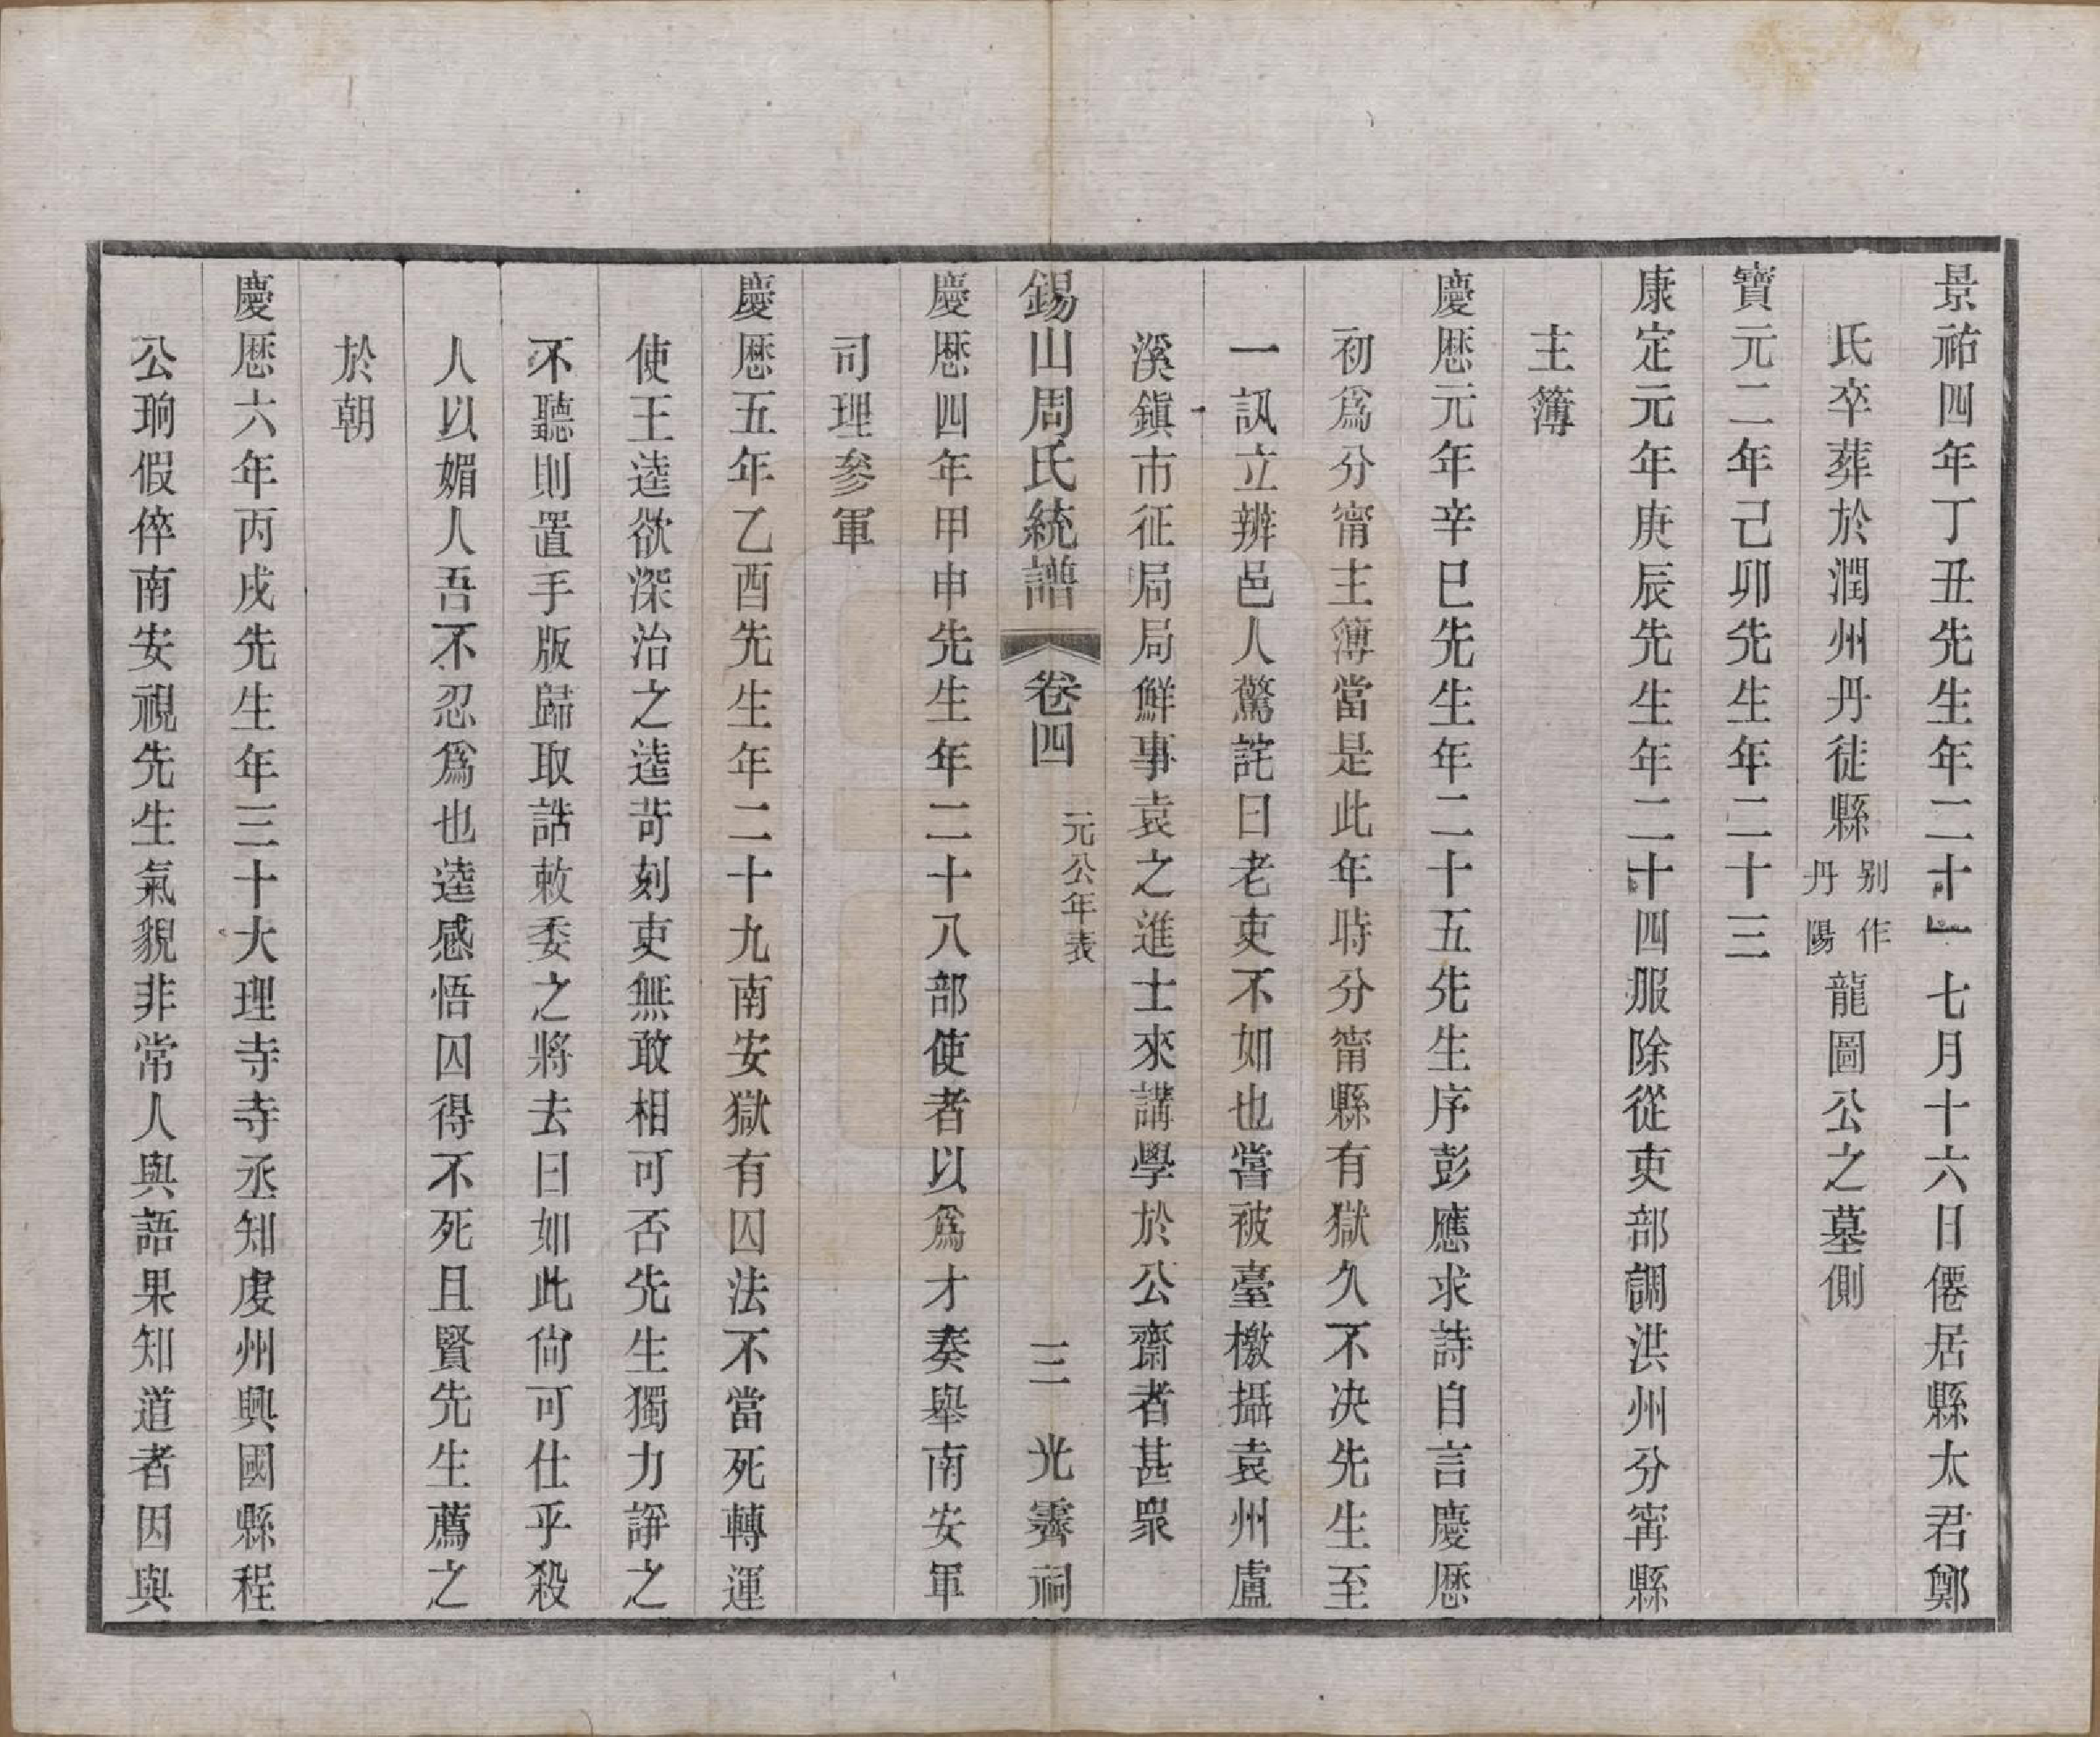 景祐四年丁丑先生年二十一七月十六日僊居縣太君鄭
氏卒葬於潤州丹徒縣别作丹陽龍圖公之墓側
寶元二年己卯先生年二十三
康定元年庚辰先生年二十四服除從吏部調洪州分甯縣
主簿
慶厯元年辛巳先生年二十五先生序彭應求詩自言慶厯
初爲分甯主簿當是此年時分甯縣有獄久不决先生至
一訊立辨邑人驚詫曰老吏不如也嘗被臺檄攝袁州盧
溪鎭市征局局鮮事袁之進士來講學於公齋者甚衆
錫山周氏統譜 卷四 元公年表 三 光霽祠
慶厯四年甲申先生年二十八部使者以爲才奏舉南安軍
司理參軍
慶厯五年乙酉先生年二十九南安獄有囚法不當死轉運
使王逵欲深治之逵苛刻吏無敢相可否先生獨力諍之
不聽則置手版歸取誥敕委之將去曰如此尙可仕乎殺
人以媚人吾不忍爲也逵感悟囚得不死且賢先生薦之
於朝
慶厯六年丙戌先生年三十大理寺寺丞知虔州興國縣程
公珦假倅南安視先生氣貌非常人與語果知道者因與